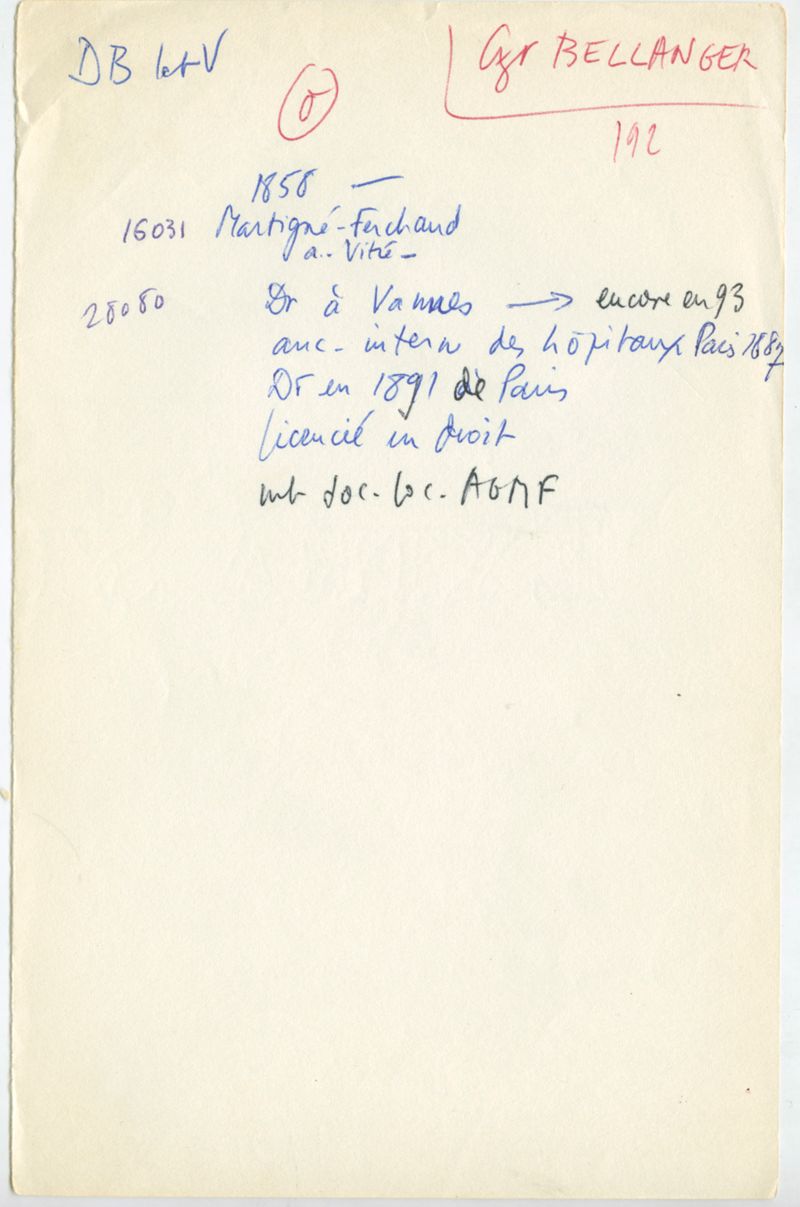 DB let V
Gr BELLANGER
192
1858 —
16031 Martigné-Ferchaud
a.. Vitré –
28080 Dr à Vannes → encore en 93
anc. interne des hôpitaux Paris 1887
Dr en 1891 de Paris
licencié en droit
mb soc. loc. AGMF